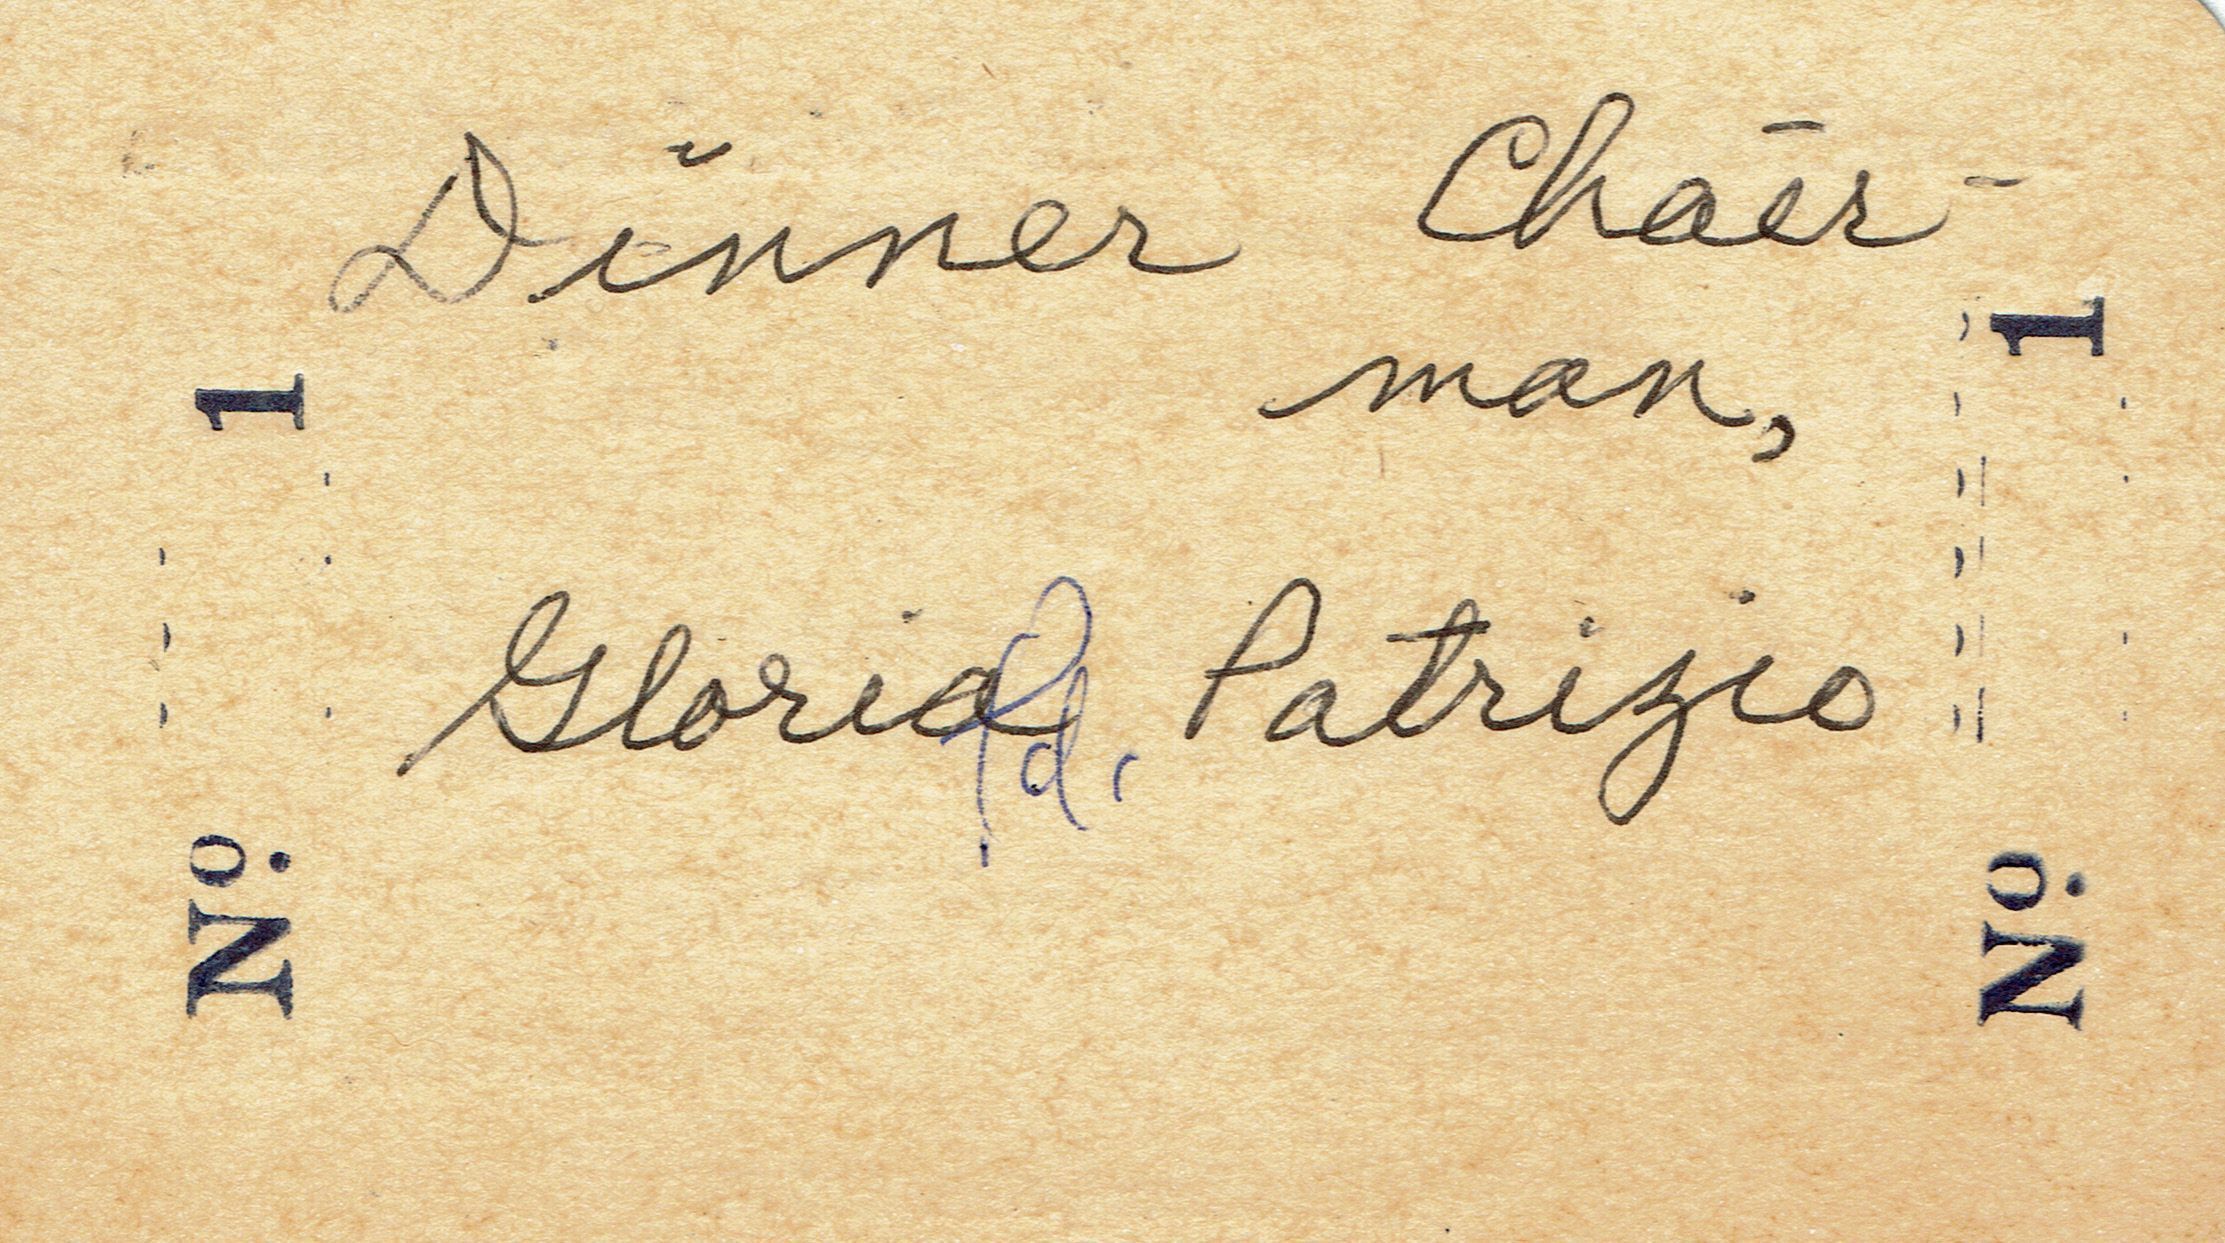 Dinner Chair-
man,
Gloria Patrizio
Pd.
No. 1
No. 1